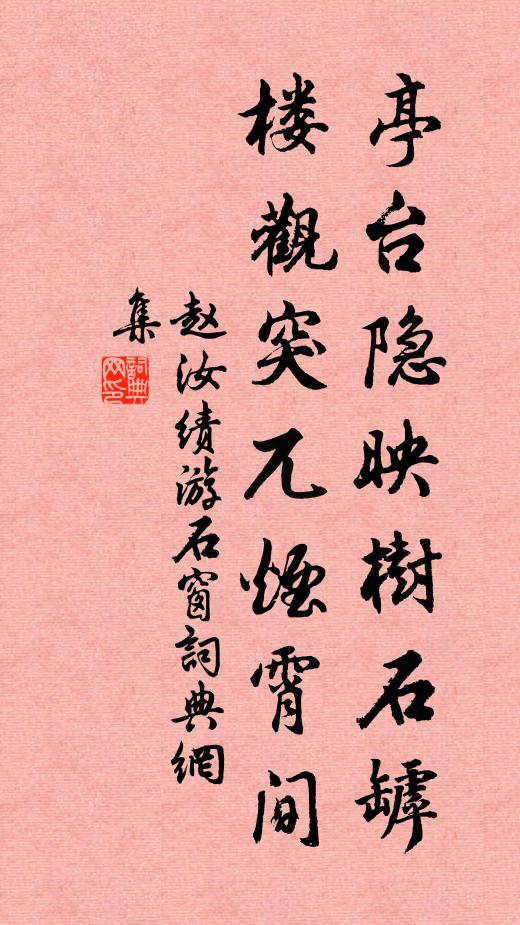 亭台隐映樹石罅
楼觀突兀煙霄间
赵汝绩游石窗詞典網
集
詞典网印